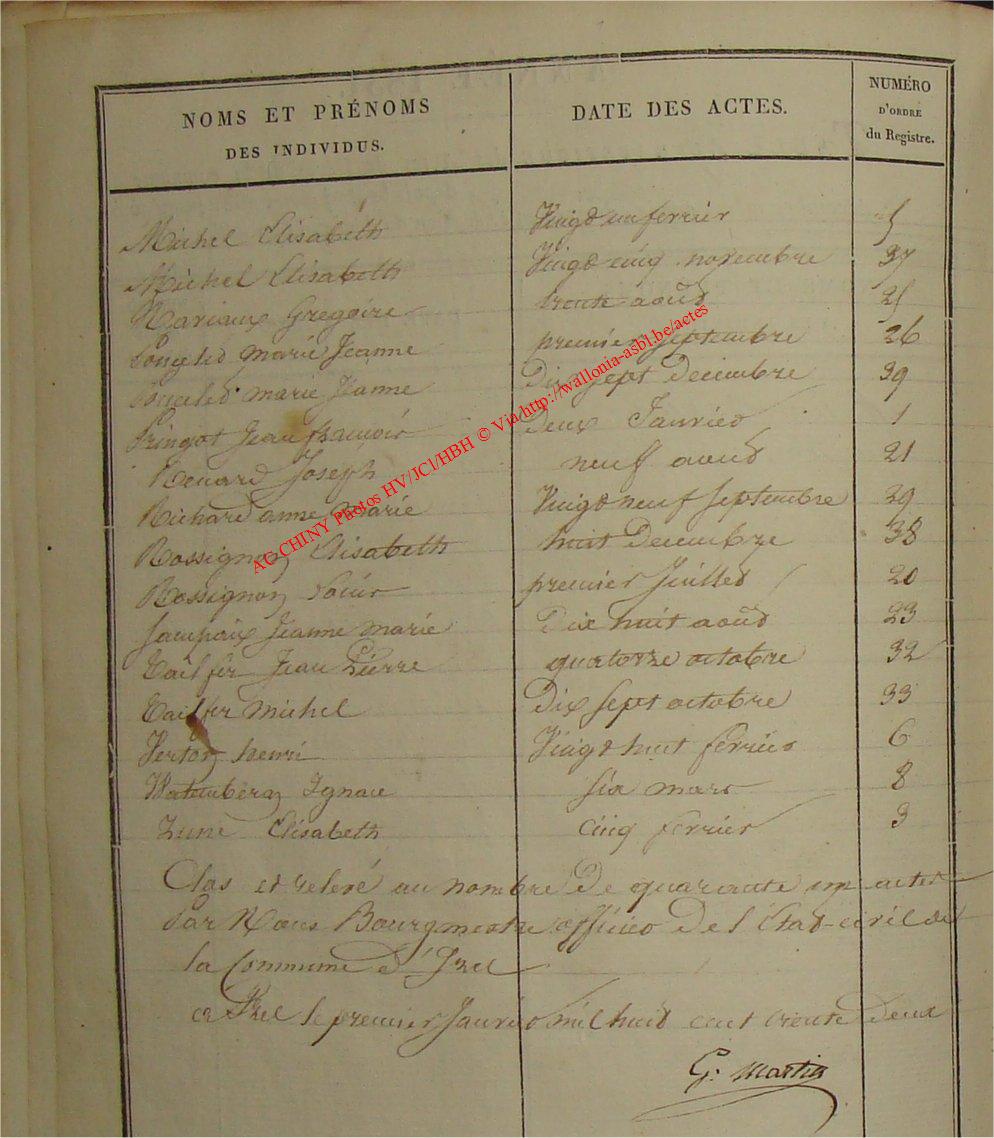 NOMS ET PRÉNOMS DES INDIVIDUS. DATE DES ACTES. NUMÉRO D'ORDRE du Registre.
Michel Elisabeth Vingt un fevrier 5
Michel Elisabeth Vingt cinq novembre 37
Mariaux Gregoire trente août 25
Poncelet marie Jeanne premier septembre 26
Poncelet marie Jeanne Dix sept Decembre 39
Pringot Jean françois Deux Janvier 1
Renard Joseph neuf août 21
Richard anne marie Vingt neuf septembre 29
Rossignon Elisabeth huit Decembre 38
Rossignon Louis premier Juillet 20
Jeanne marie Dix huit août 23
Tailfer Jean Pierre quatorze octobre 32
Tailfer michel Dix sept octobre 33
Verton henri Vingt huit fevrier 6
Ignace six mars 8
Zune Elisabeth cinq fevrier 3
Clos et relevé au nombre De quarante un actes
Par Nous Bourgmestre officier De l'État-civil de
la Commune d'Izel
a Izel le premier Janvier mil huit cent trente deux
G. Martin
AC-CHINY Photos HV/JCl/HBH © Via http://wallonia-asbl.be/actes